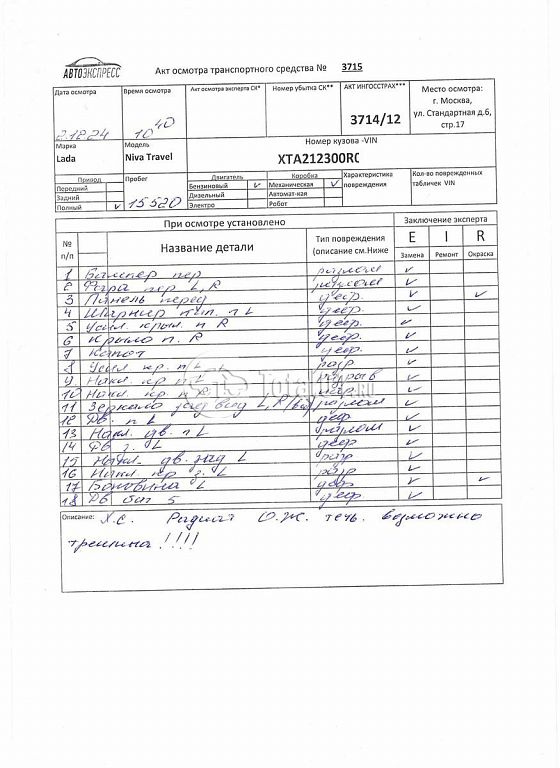 АВТОЭКСПРЕСС
Акт осмотра транспортного средства № 3715
Дата осмотра
2.12.24
Время осмотра
10 40
Акт осмотра эксперта СК*
Номер убытка СК**
АКТ ИНГОССТРАХ***
3714/12
Место осмотра:
г. Москва,
ул. Стандартная д.6,
стр.17
Марка
Lada
Модель
Niva Travel
Номер кузова -VIN
XTA212300R
Привод
Передний
Задний
Полный v
Пробег
15520
Двигатель
Бензиновый v
Дизельный
Электро
Коробка
Механическая v
Автомат-кая
Робот
Характеристика
повреждения
Кол-во поврежденных
табличек VIN
При осмотре установлено
Заключение эксперта
№
п/п
Название детали
Тип повреждения
(описание см.Ниже
E I R
Замена Ремонт Окраска
1 Бампер пер разлом v
2 Фара пер L, R разлом v
3 Панель перед деф. v v
4 Шарнир кап. п L деф. v
5 Усил. крыл. п R деф. v
6 Крыло п. R деф. v
7 Капот деф. v
8 Усил кр. п L v
9 Накл. кр п L разрыв v
10 Накл. кр. п R v
11 Зеркало L, R разлом v
12 Дв. п L деф v
13 Накл. дв. п L разлом v
14 Дв з. L деф v
15 Накл. дв. зад L v
16 Накл кр з. L v
17 Боковина L деф v v
18 Дв баг 5 деф v
Total01.RU
Описание: Х.С. О.Ж. течь. возможно
трещина !!!!!